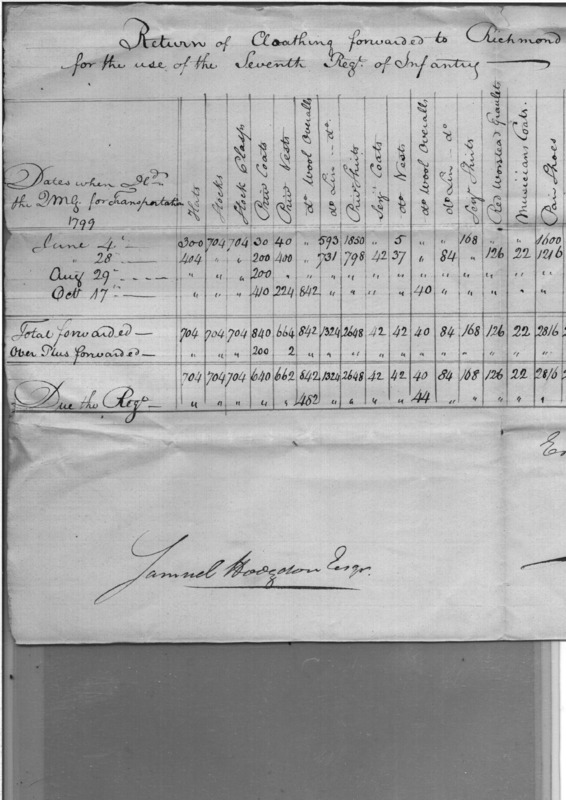 Return of Cloathing forwarded to Richmond
for the use of the Seventh Regt. of Infantry
Dates when
the QMG. for Transportation
1799
Hats
Stocks
Stock Clasps
Priv Coats
Priv Vests
do Wool Overalls
do Lin do
Priv Shirts
Serjt Coats
do Vests
do Wool Overalls
do Lin do
Serjt Shirts
Red Worsted Epaulets
Musicians Coats
Pair Shoes
June 4 300 704 704 30 40 " 593 1850 " 5 " " 168 " " 1600
" 28 404 " " 200 400 " 731 798 42 37 " 84 " 126 22 1216
Aug 29 " " " 200 " " " " " " " " " " " "
Oct 17 " " " 410 224 842 " " " " 40 " " " " "
Total forwarded 704 704 704 840 664 842 1324 2648 42 42 40 84 168 126 22 2816
Over Plus forwarded " " " 200 2 " " " " " " " " " " "
704 704 704 640 662 842 1324 2648 42 42 40 84 168 126 22 2816
Due the Regt " " " " " 482 " " " " 44 " " " " "
Samuel Hodgdon Esqr.